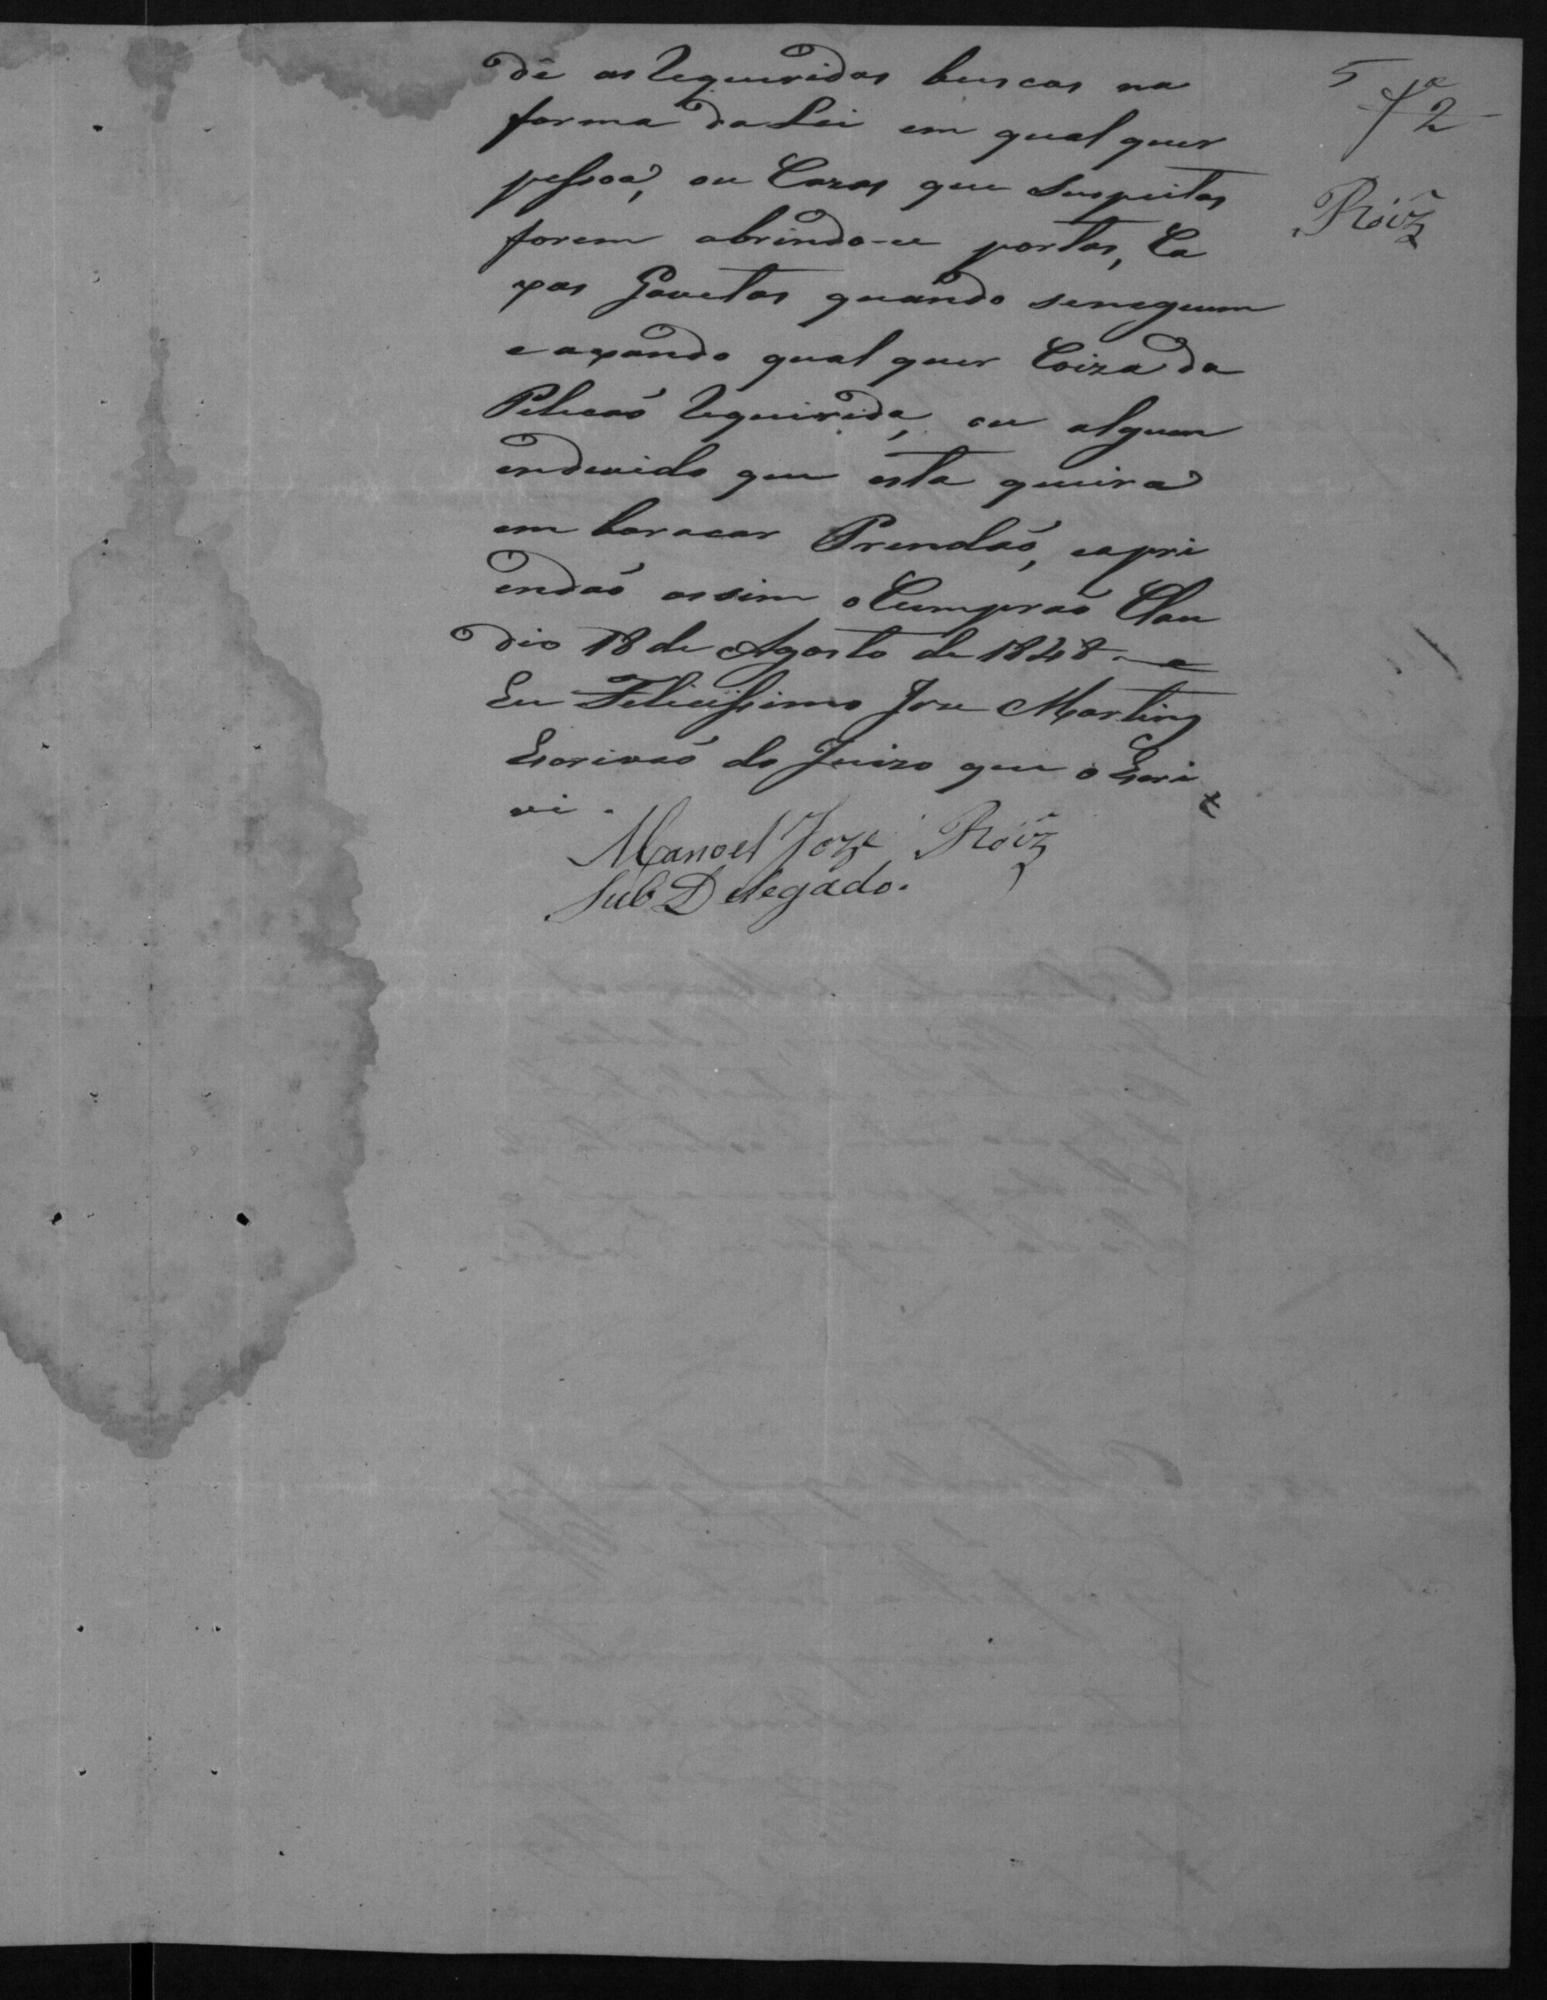 5
fª 2
Roiz
dê as Requeridas buscas na
forma da Lei em qual quer
pessoa, ou Cazas que Suspeitas
forem abrindo-ce portas, Ca
xas Gavetas quando seneguem
e axando qual quer Coiza da
Peticaó Requirida, ou alguem
endevido que esta queira
em baracar Prendaó, e apri
endaó assim o Cumpraó Clau
dio 18 de Agosto de 1848. e
Eu Felicissimo Joze Martins
Escrivaó do Juizo que o Escri
vi.
Manoel Joze Roiz
Sub Delegado.